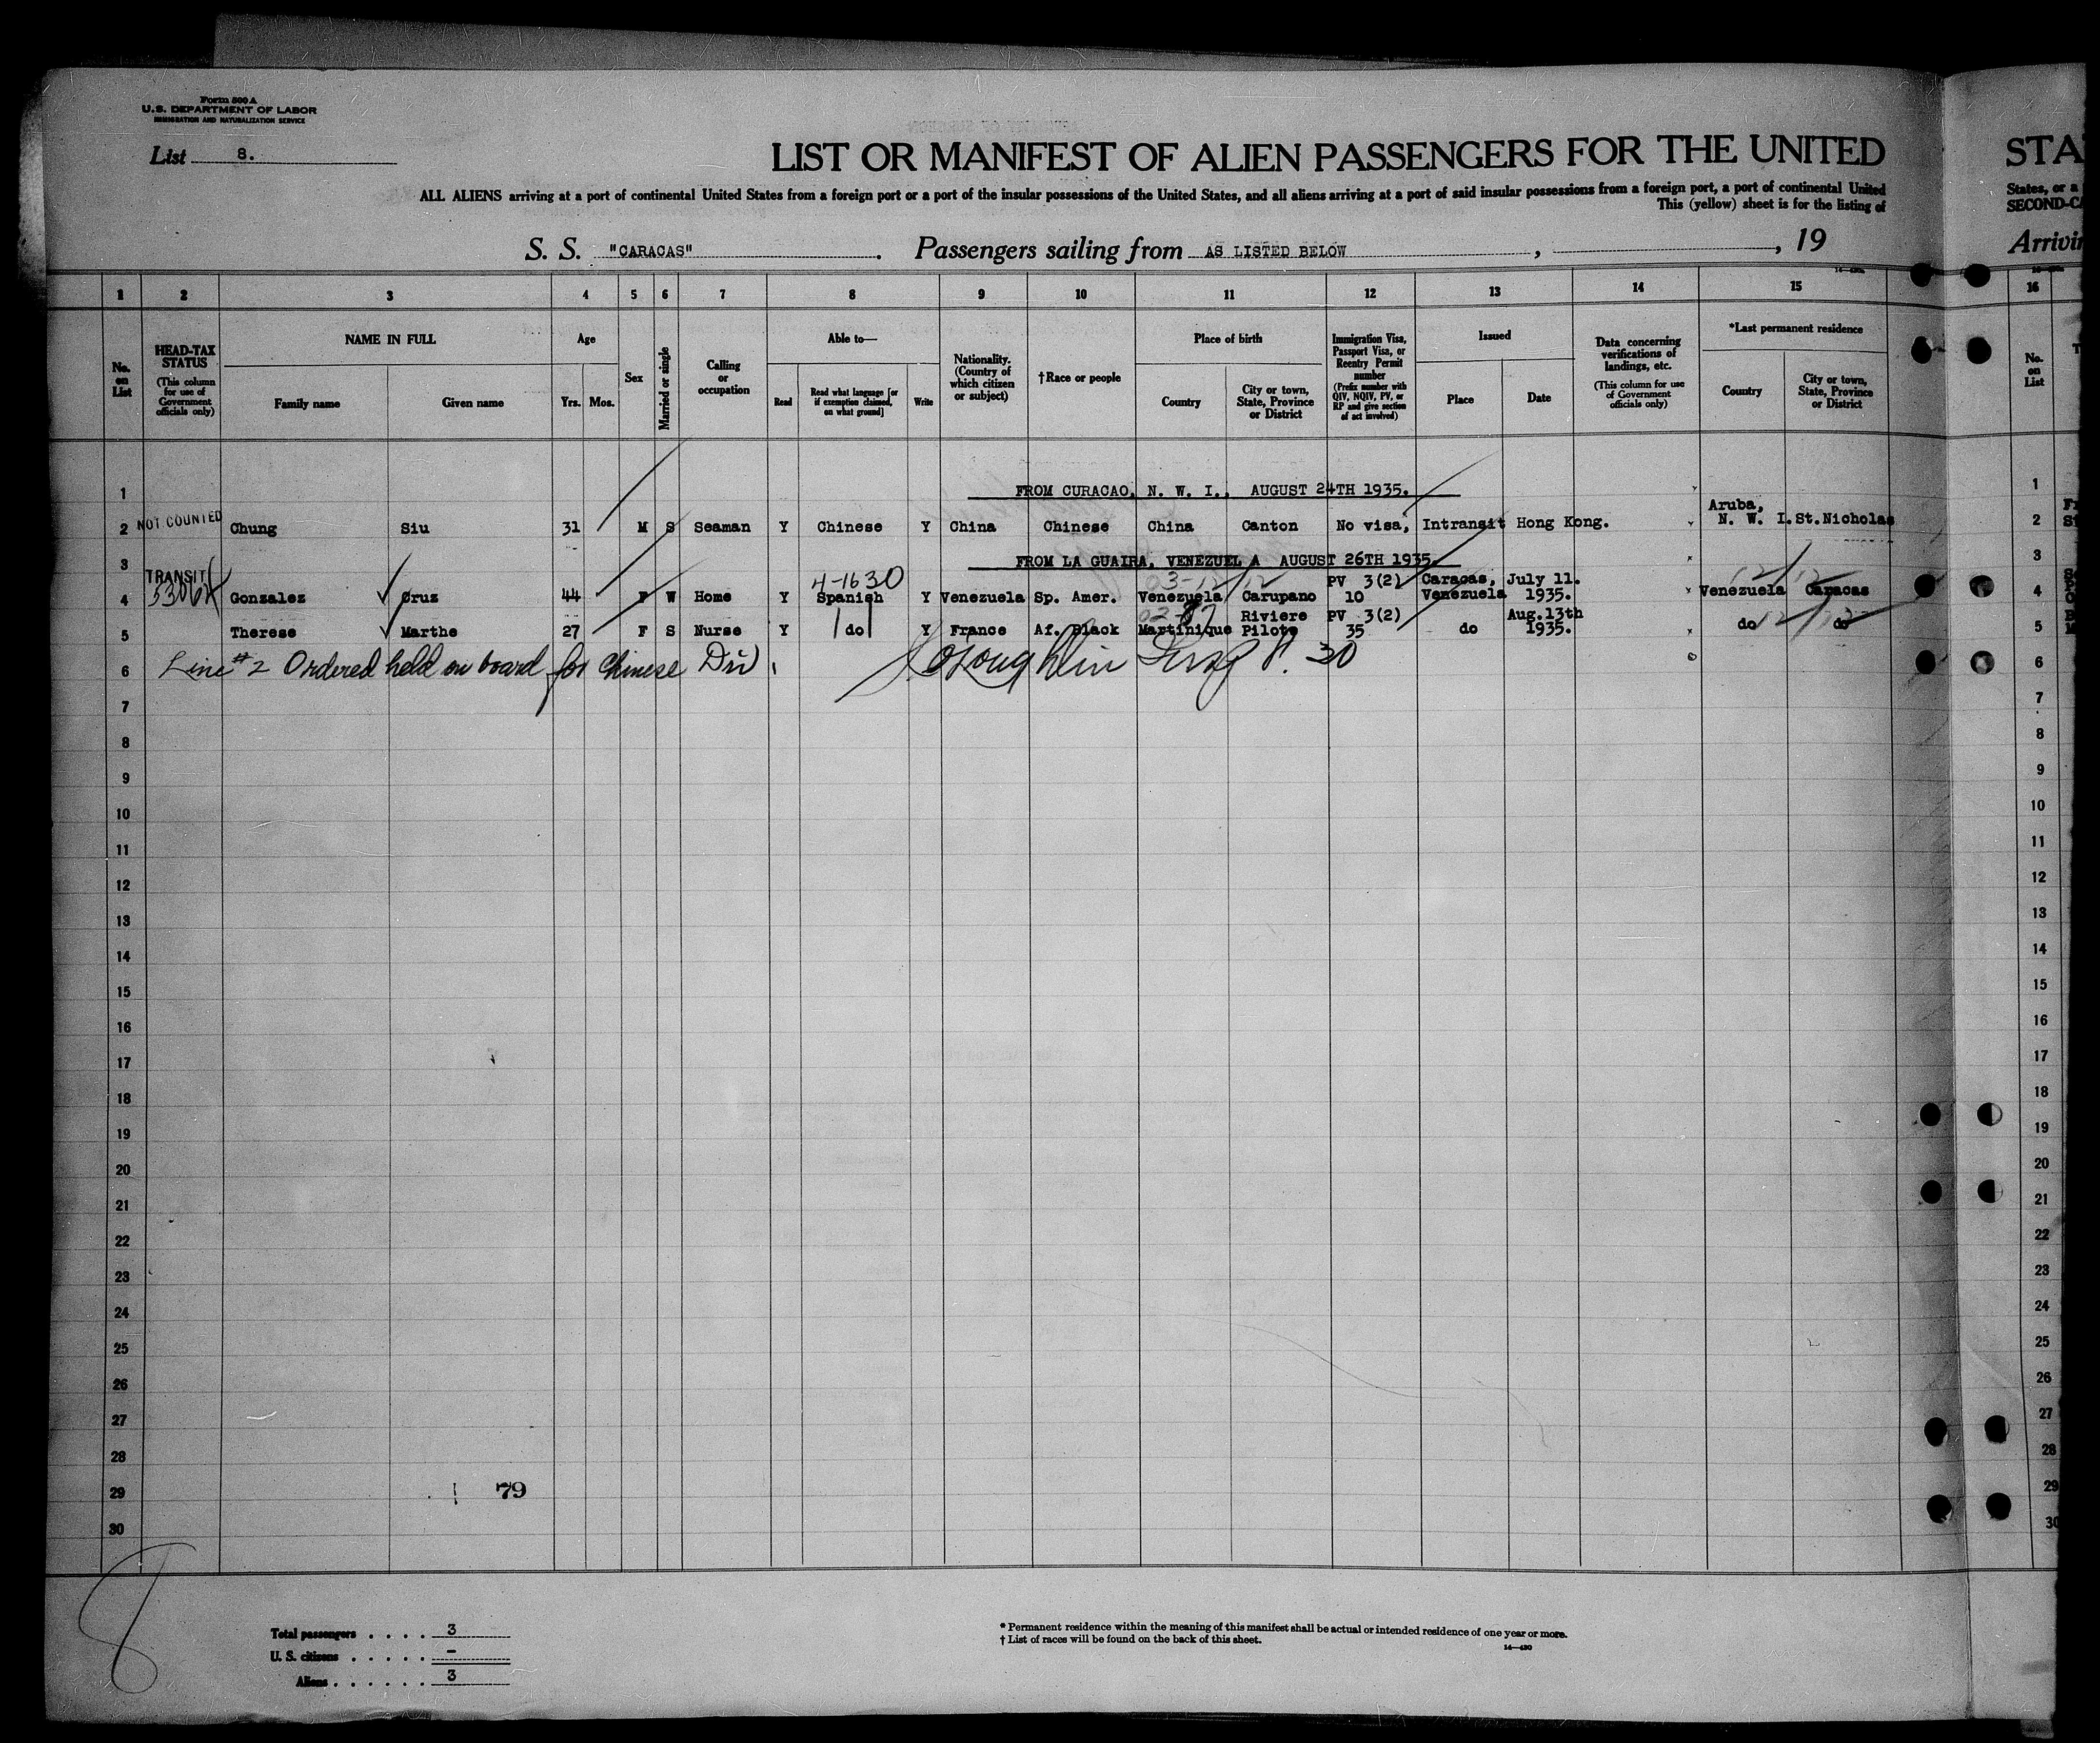 Form 500 A
U. S. DEPARTMENT OF LABOR
IMMIGRATION AND NATURALIZATION SERVICE
List 8.
LIST OR MANIFEST OF ALIEN PASSENGERS FOR THE UNITED
STA
ALL ALIENS arriving at a port of continental United States from a foreign port or a port of the insular possessions of the United States, and all aliens arriving at a port of said insular possessions from a foreign port, a port of continental United
States, or a
This (yellow) sheet is for the listing of
SECOND-CA
S. S. "CARACAS". Passengers sailing from AS LISTED BELOW, , 19
Arrivin
1 2 3 4 5 6 7 8 9 10 11 12 13 14 15 16
No. on List
HEAD-TAX STATUS (This column for use of Government officials only)
NAME IN FULL
Family name Given name
Age
Yrs. Mos.
Sex
Married or single
Calling or occupation
Able to—
Read Read what language [or if exemption claimed, on what ground] Write
Nationality. (Country of which citizen or subject)
†Race or people
Place of birth
Country City or town, State, Province or District
Immigration Visa, Passport Visa, or Reentry Permit number (Prefix number with QIV, NQIV, PV, or RP and give section of act involved)
Issued
Place Date
Data concerning verifications of landings, etc. (This column for use of Government officials only)
*Last permanent residence
Country City or town, State, Province or District
No. on List
1 FROM CURACAO, N. W. I., AUGUST 24TH 1935. 1
2 NOT COUNTED Chung Siu 31 M S Seaman Y Chinese Y China Chinese China Canton No visa, Intransit Hong Kong. Aruba, N. W. I. St. Nicholas 2
3 FROM LA GUAIRA, VENEZUELA AUGUST 26TH 1935. 3
4-1630 03-12/12
4 TRANSIT Gonzalez Cruz 44 F W Home Y Spanish Y Venezuela Sp. Amer. Venezuela Carupano PV 3(2) 10 Caracas, Venezuela July 11. 1935. Venezuela Caracas 4
5 Therese Marthe 27 F S Nurse Y do Y France Af. Black Martinique Riviere Pilote PV 3(2) 35 do Aug.13th 1935. do do 5
6 Line #2 Ordered held on board for Chinese Div. 6
7 7
8 8
9 9
10 10
11 11
12 12
13 13
14 14
15 15
16 16
17 17
18 18
19 19
20 20
21 21
22 22
23 23
24 24
25 25
26 26
27 27
28 28
29 79 29
30 30
8
Total passengers . . . . 3
U. S. citizens . . . . . –
Aliens . . . . . . 3
* Permanent residence within the meaning of this manifest shall be actual or intended residence of one year or more.
† List of races will be found on the back of this sheet.
14—430